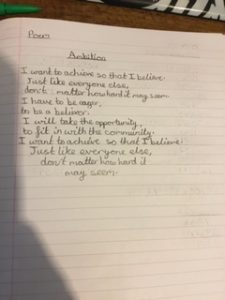 Poem
Ambition
I want to achieve so that I believe.
Just like everyone else,
don't matter how hard it may seem.
I have to be eager,
to be a believer.
I will take the opportunity,
to fit in with the community.
I want to achieve so that I believe.
Just like everyone else,
don't matter how hard it
may seem.